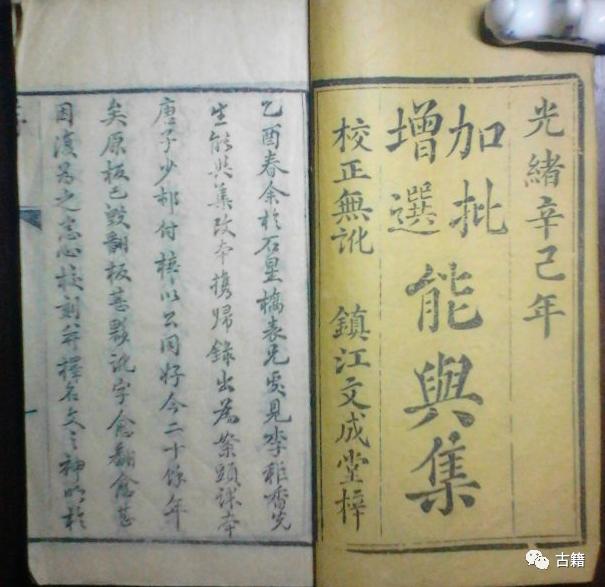 光緒辛己年
加批
增選
能與集
校正無訛 鎮江文成堂梓
乙酉春余於石星橋表兄處見李香先
生能與集改本携歸錄出為案頭課本
唐子少邨付梓以公同好今二十餘年
矣原板已毀翻板甚夥訛字愈翻愈甚
因復為之悉心校刻并擇名文之神明於
古籍